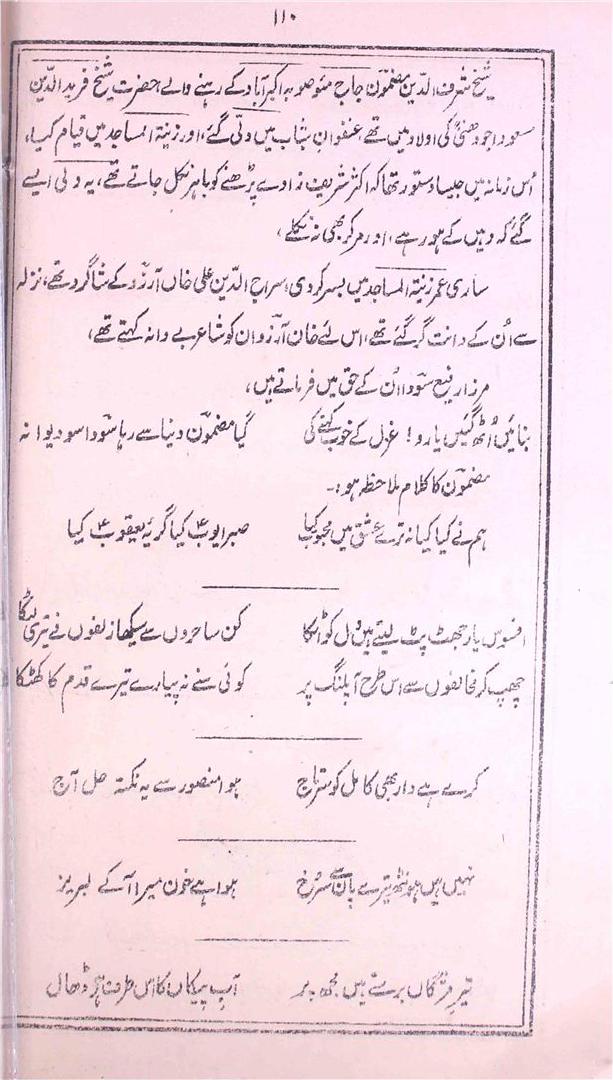 ۱۱۰
شیخ شرف الدین مضمونؔ جاج مئو صوبہ اکبر آباد کے رہنے والے، حضرت شیخ فرید الدین
مسعود اجودھنیؒ کی اولاد میں تھے، عنفوانِ شباب میں دتی گئے، اور زینۃ المساجد میں قیام کیا،
اُس زمانہ میں جیسا دستور تھا کہ اکثر شریف زادے پڑھنے کو باہر نکل جاتے تھے، یہ دلی ایسے
گئے کہ وہیں کے ہو رہے، اور مر کر بھی نہ نکلے،
ساری عمر زینۃ المساجد میں بسر کر دی، سراج الدین علی خاں آرزؔو کے شاگرد تھے، نزلہ
سے اُن کے دانت گر گئے تھے، اس لئے خان آرزؔو ان کو شاعر بے دانہ کہتے تھے،
مرزا رفیع سوؔدا اُن کے حق میں فرماتے ہیں،
بنائیں اُٹھ گئیں یارو! غزل کے خوب کہنے کی گیا مضمونؔ دنیا سے رہا سوؔدا سو دیوانہ
مضمونؔ کا کلام ملاحظہ ہو:۔
ہم نے کیا کیا نہ ترے عشق میں محبوب کیا صبر ایوبؑ کیا گریۂ یعقوبؑ کیا
افسوس یار جھٹ پٹ لیتے ہیں دل کو اٹکا کن ساحروں سے سیکھا زلفوں نے تیری لٹکا
چھپ کر مخالفوں سے اس طرح آ پلنگ پر کوئی سنے نہ پیارے تیرے قدم کا کھٹکا
کرے ہے دار بھی کامل کو سرتاج ہوا منصور سے یہ نکتہ حل آج
نہیں ہیں ہونٹھ تیرے پان سے سُرخ ہوا ہے خون میرا آ کے لبریز
تیرِ مژگاں برستے ہیں مجھ پر آبِ پیکاں کا اس طرف ہے ڈھال